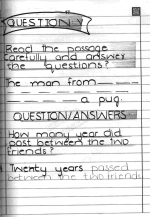 QUESTION
Read the passage
carefully and answer
the questions?
The man from
a pug.
QUESTION/ANSWERS
How many year did
past between the two
friends?
Twenty years passed
between the two friends